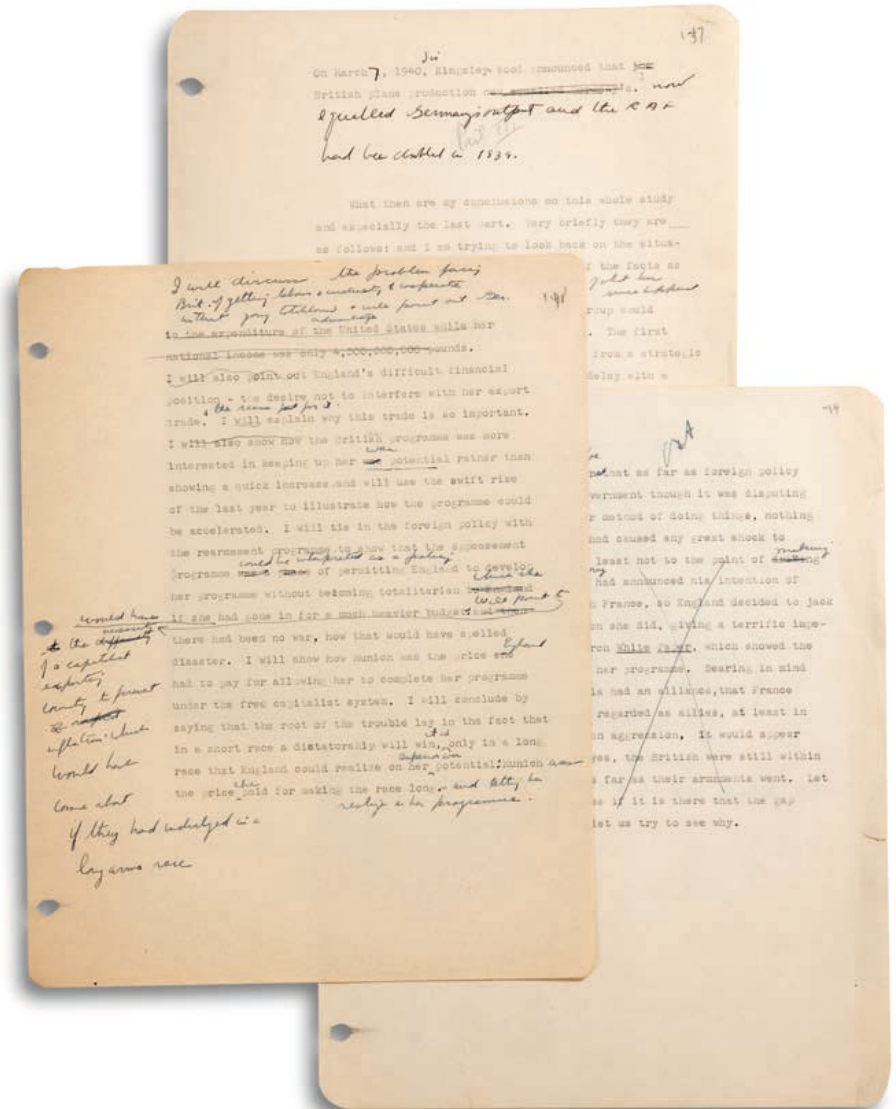 147
Sir
On March 7, 1940, Kingsley Wood announced that
British plane production now
equalled Germany's output and the RAF
had been doubled in 1939.
What then are my conclusions on this whole study
and especially the last part. Very briefly they are
as follows: and I am trying to look back on the situa-
f the facts as
since happened
roup would
. The first
from a strategic
delay with a
148
I will discuss the problem facing
Brit. of getting labour & industry to cooperate
without going totalitarian & will point out Ger.
advantage
to the expenditure of the United States while her
national income was only 4,000,000,000 pounds.
I will also point out England's difficult financial
position - the desire not to interfere with her export
trade. I will explain why this trade is so important.
I will also show how the British programme was more
interested in keeping up her potential rather than
showing a quick increase and will use the swift rise
of the last year to illustrate how the programme could
be accelerated. I will tie in the foreign policy with
the rearmament programme to show that the appeasement
could be interpreted as a policy
programme was a of permitting England to develop
her programme without becoming totalitarian
will point to
if she had gone in for a much heavier budget and then
there had been no war, how that would have spelled
England
disaster. I will show how Munich was the price she
had to pay for allowing her to complete her programme
under the free capitalist system. I will conclude by
saying that the root of the trouble lay in the fact that
it is
in a short race a dictatorship will win, only in a long
superior
race that England could realize on her potential; Munich was
she
the price paid for making the race long. and letting her
realize on her programme.
would have
necessity
to the difficulty
of a capitalist
exporting
country to prevent
inflation which
would have
come about
if they had indulged in a
long arms race
that as far as foreign policy
vernment though it was disputing
r method of doing things, nothing
had caused any great shock to
making
least not to the point of
had announced his intention of
n France, so England decided to jack
on she did, giving a terrific impe-
rch White Paper, which showed the
her programme. Bearing in mind
ia had an alliance, that France
regarded as allies, at least in
an aggression. It would appear
yes, the British were still within
s far as their armaments went. Let
se if it is there that the gap
let us try to see why.